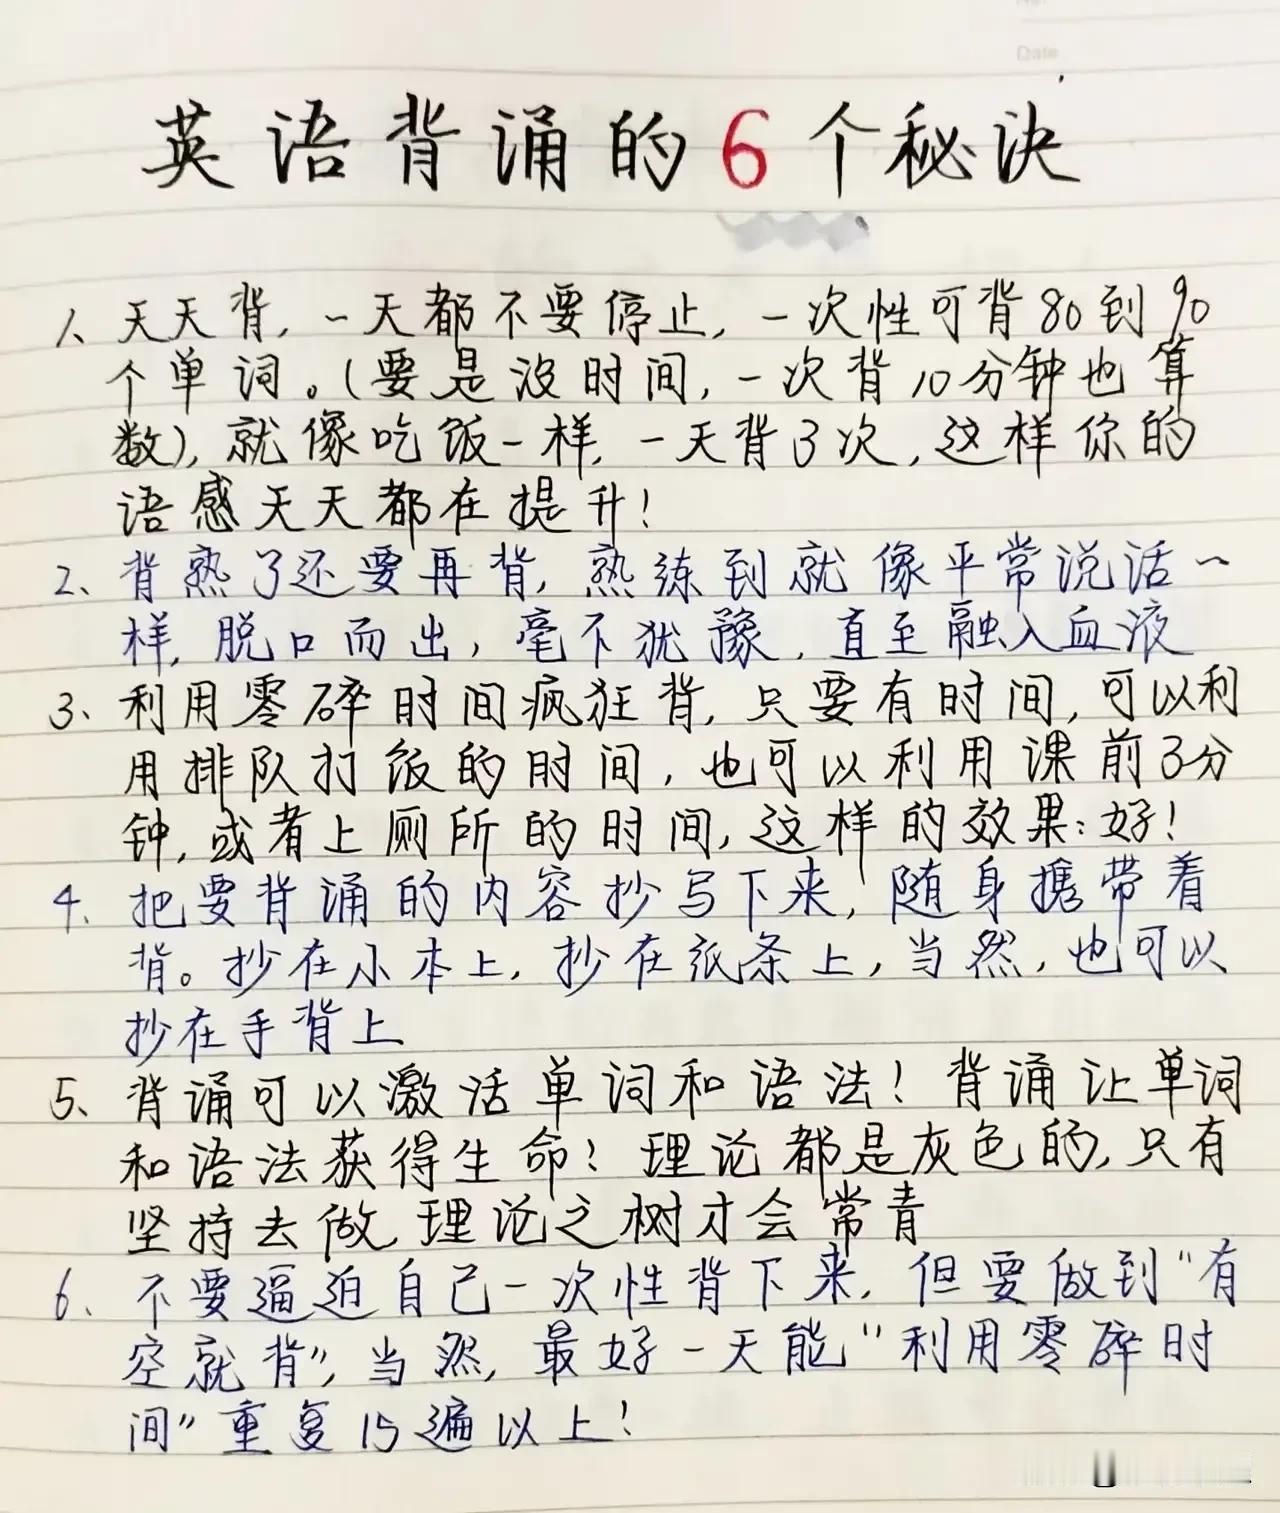 Date
英语背诵的6个秘诀
1、天天背,一天都不要停止,一次性可背80到90
个单词。(要是没时间,一次背10分钟也算
数),就像吃饭一样,一天背3次,这样你的
语感天天都在提升!
2、背熟了还要再背,熟练到就像平常说话一
样,脱口而出,毫不犹豫,直至融入血液
3、利用零碎时间疯狂背,只要有时间,可以利
用排队打饭的时间,也可以利用课前3分
钟,或者上厕所的时间,这样的效果:好!
4、把要背诵的内容抄写下来,随身携带着
背。抄在小本上,抄在纸条上,当然,也可以
抄在手背上
5、背诵可以激活单词和语法!背诵让单词
和语法获得生命!理论都是灰色的,只有
坚持去做,理论之树才会常青
6、不要逼迫自己一次性背下来,但要做到"有
空就背",当然,最好一天能"利用零碎时
间"重复15遍以上!